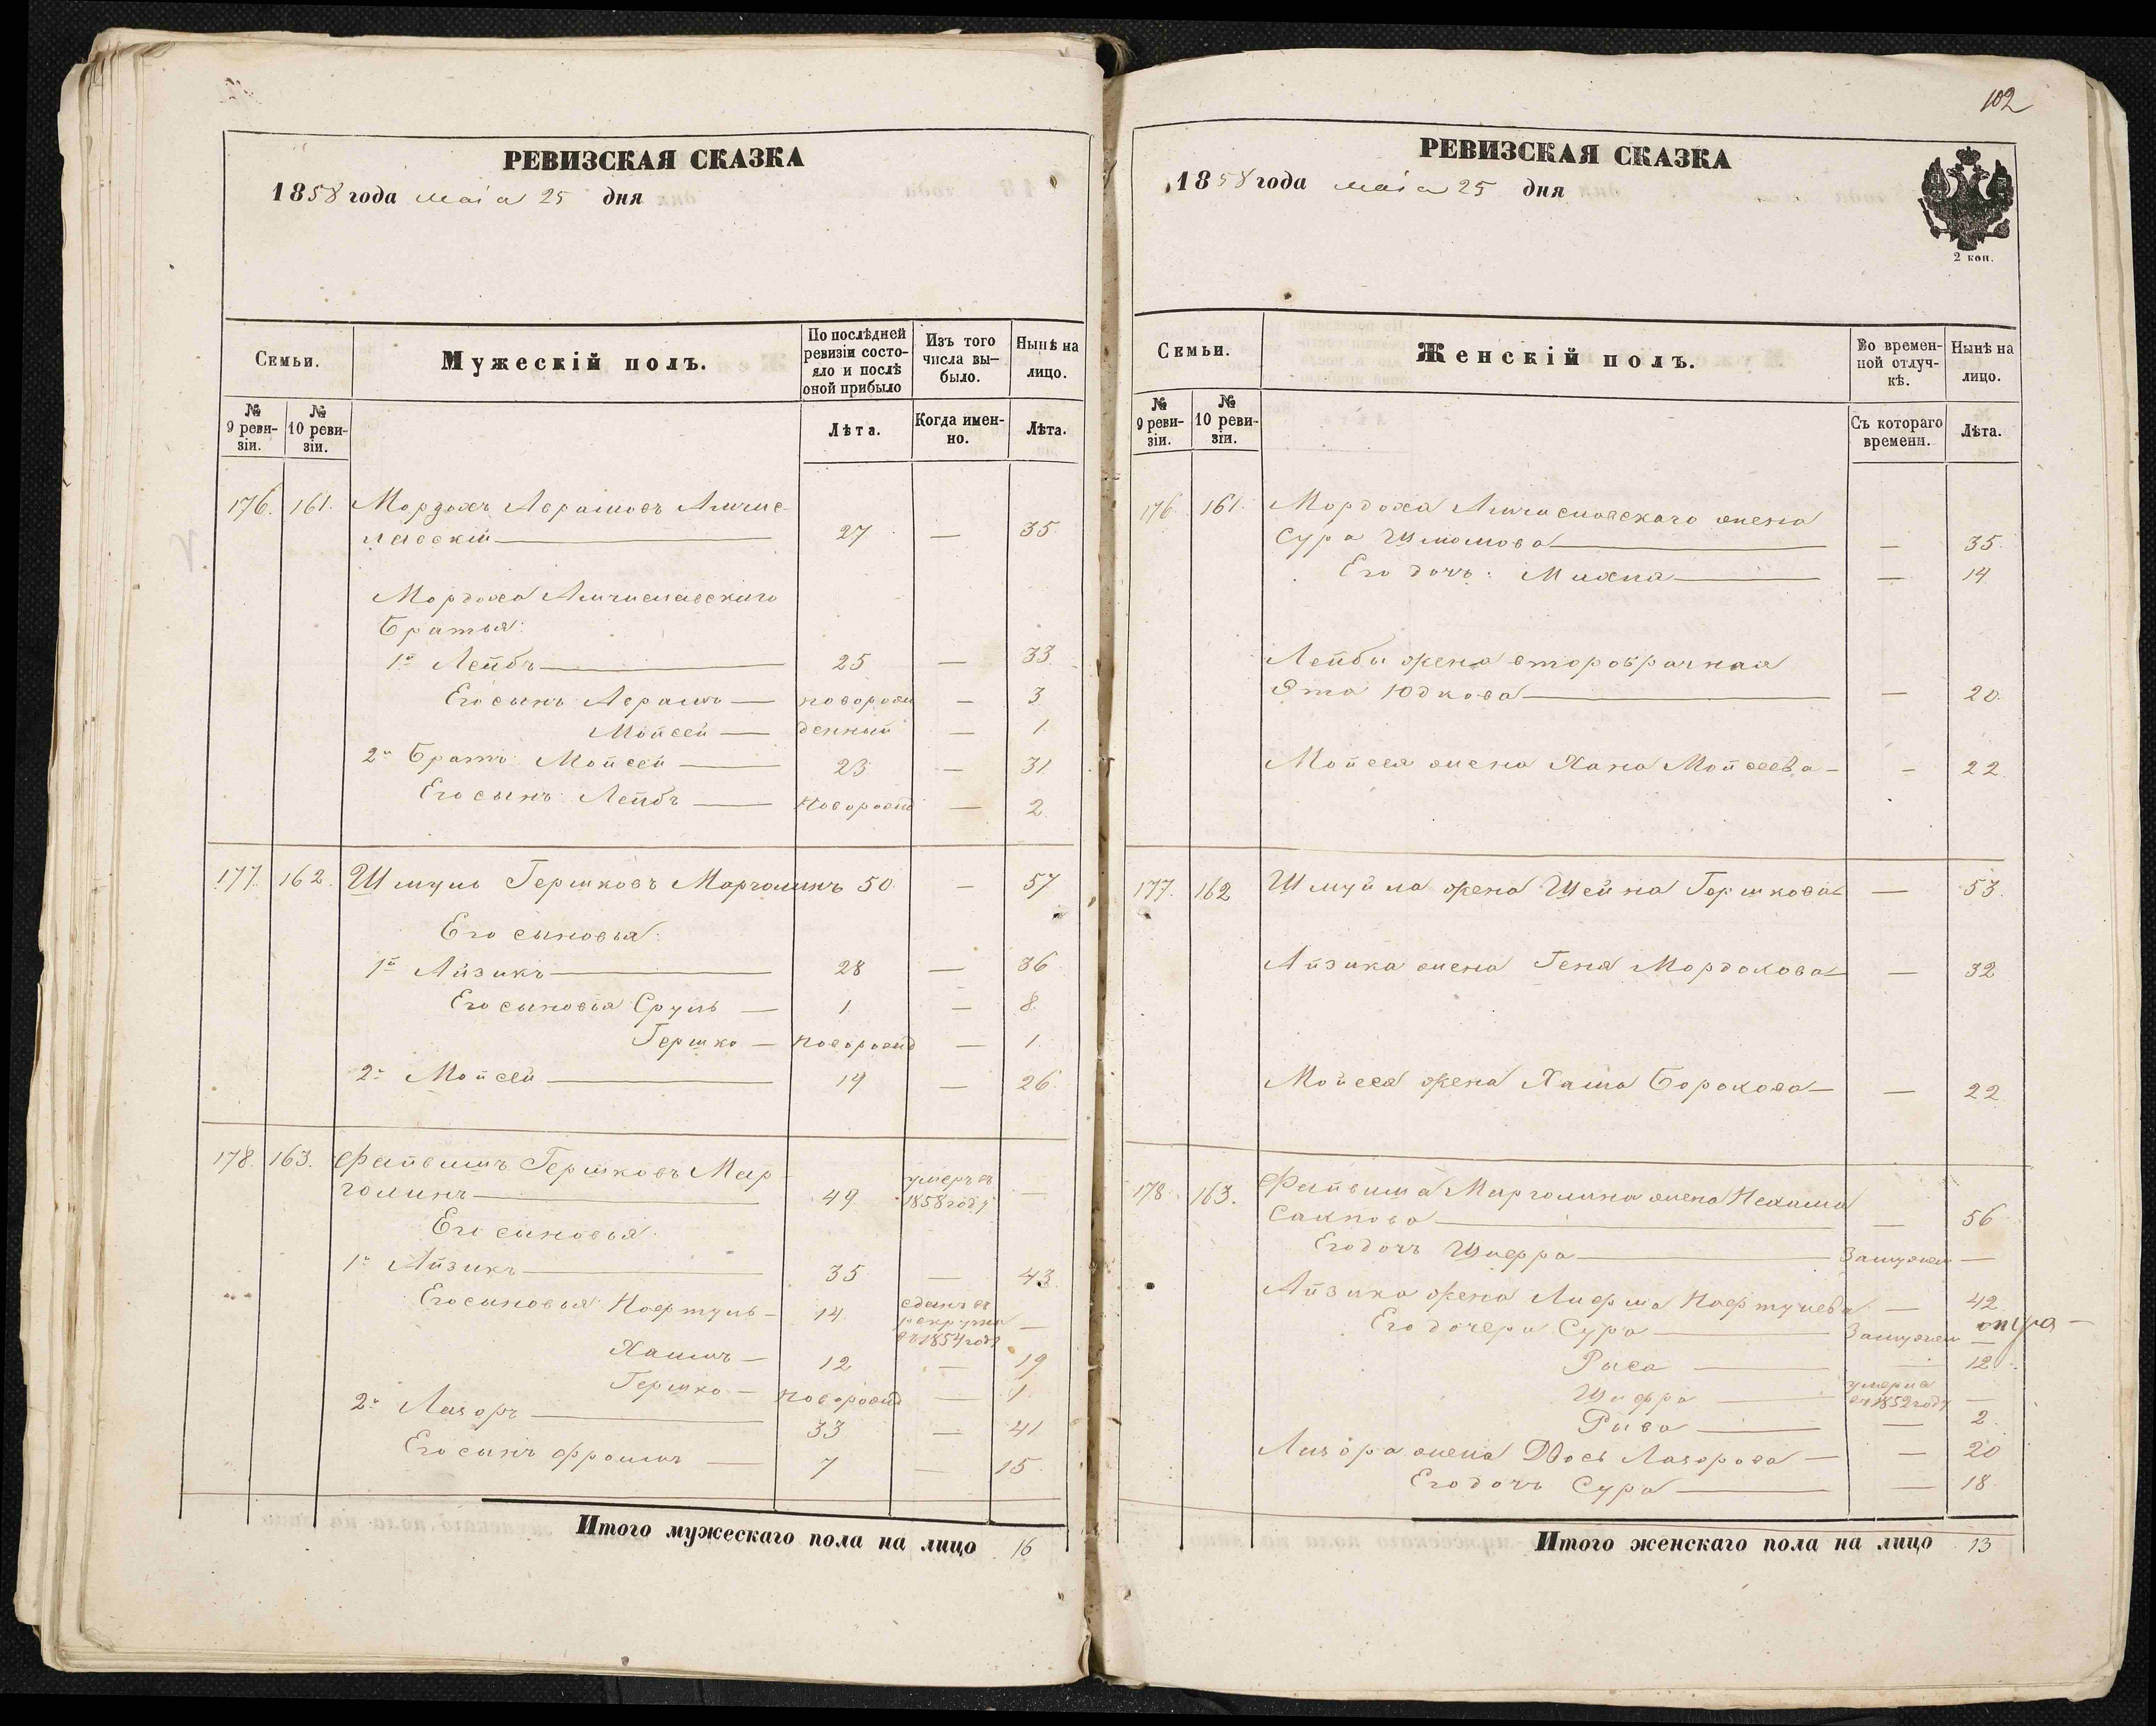 РЕВИЗСКАЯ СКАЗКА
1858 года маiя 25 дня
Семьи.
Мужескій полъ.
По послѣдней ревизіи состо-
яло и послѣ
оной прибыло
Изъ того
числа вы-
было.
Нынѣ на
лицо.
№
9 реви-
зіи.
№
10 реви-
зіи.
Лѣта.
Когда имен-
но.
Лѣта.
176. 161. Мордохъ Аврамовъ Амчис-
лавскій 27 — 35
Мордоха Амчиславскаго
Братья:
1й Лейбъ 25 — 33.
Его сынъ Аврамъ — новорож — 3
Мойсей — денный — 1.
2й Братъ: Мойсей 23 — 31
Его сынъ: Лейбъ новорожд — 2
177. 162. Шмуль Гершковъ Марголинъ 50 — 57
Его сыновья:
1й Айзикъ 28 — 36
Его сыновья Сруль — 1 — 8.
Гершко — новорожд — 1.
2й Мойсей 19 — 26.
178. 163. Файвишъ Гершковъ Мар-
голинъ 49 умеръ въ 1858 году —
Его сыновья:
1й Айзикъ 35 — 43.
Его сыновья: Нафтуль — 14 сданъ въ рекруты въ 1854 году —
Хаимъ — 12 — 19
Гершко — новорожд — 1.
2й Лазоръ 33 — 41
Его сынъ Фроимъ 7 — 15.
Итого мужескаго пола на лицо 16
102
РЕВИЗСКАЯ СКАЗКА
1858 года маiя 25 дня
2 коп.
Семьи.
Женскій полъ.
Во времен-
ной отлуч-
кѣ.
Нынѣ на
лицо.
№
9 реви-
зіи.
№
10 реви-
зіи.
Съ котораго
времени.
Лѣта.
176. 161. Мордоха Амчиславскаго жена
Сура Шмомова — 35.
Его дочь: Михна — 14
Лейбы жена второбрачная
Эта Юдкова — 20.
Мойсея жена Хана Мойсеева — 22
177. 162 Шмуйла жена Шейна Гершкова — 53.
Айзика жена Геня Мордохова — 32
Мойсея жена Хаша Борохова — 22
178. 163. Файвиша Марголина жена Нехама
— 56
Его дочь Шифра Замужем —
Айзика жена Нафтулева — 42
Его дочери Сура Замужем —
Раса — 12.
Шифра умерла въ 1852 году —
Рива — 2.
Лазора жена Двося Лазорова — 20
Его дочь Сура — 18.
Итого женскаго пола на лицо 13